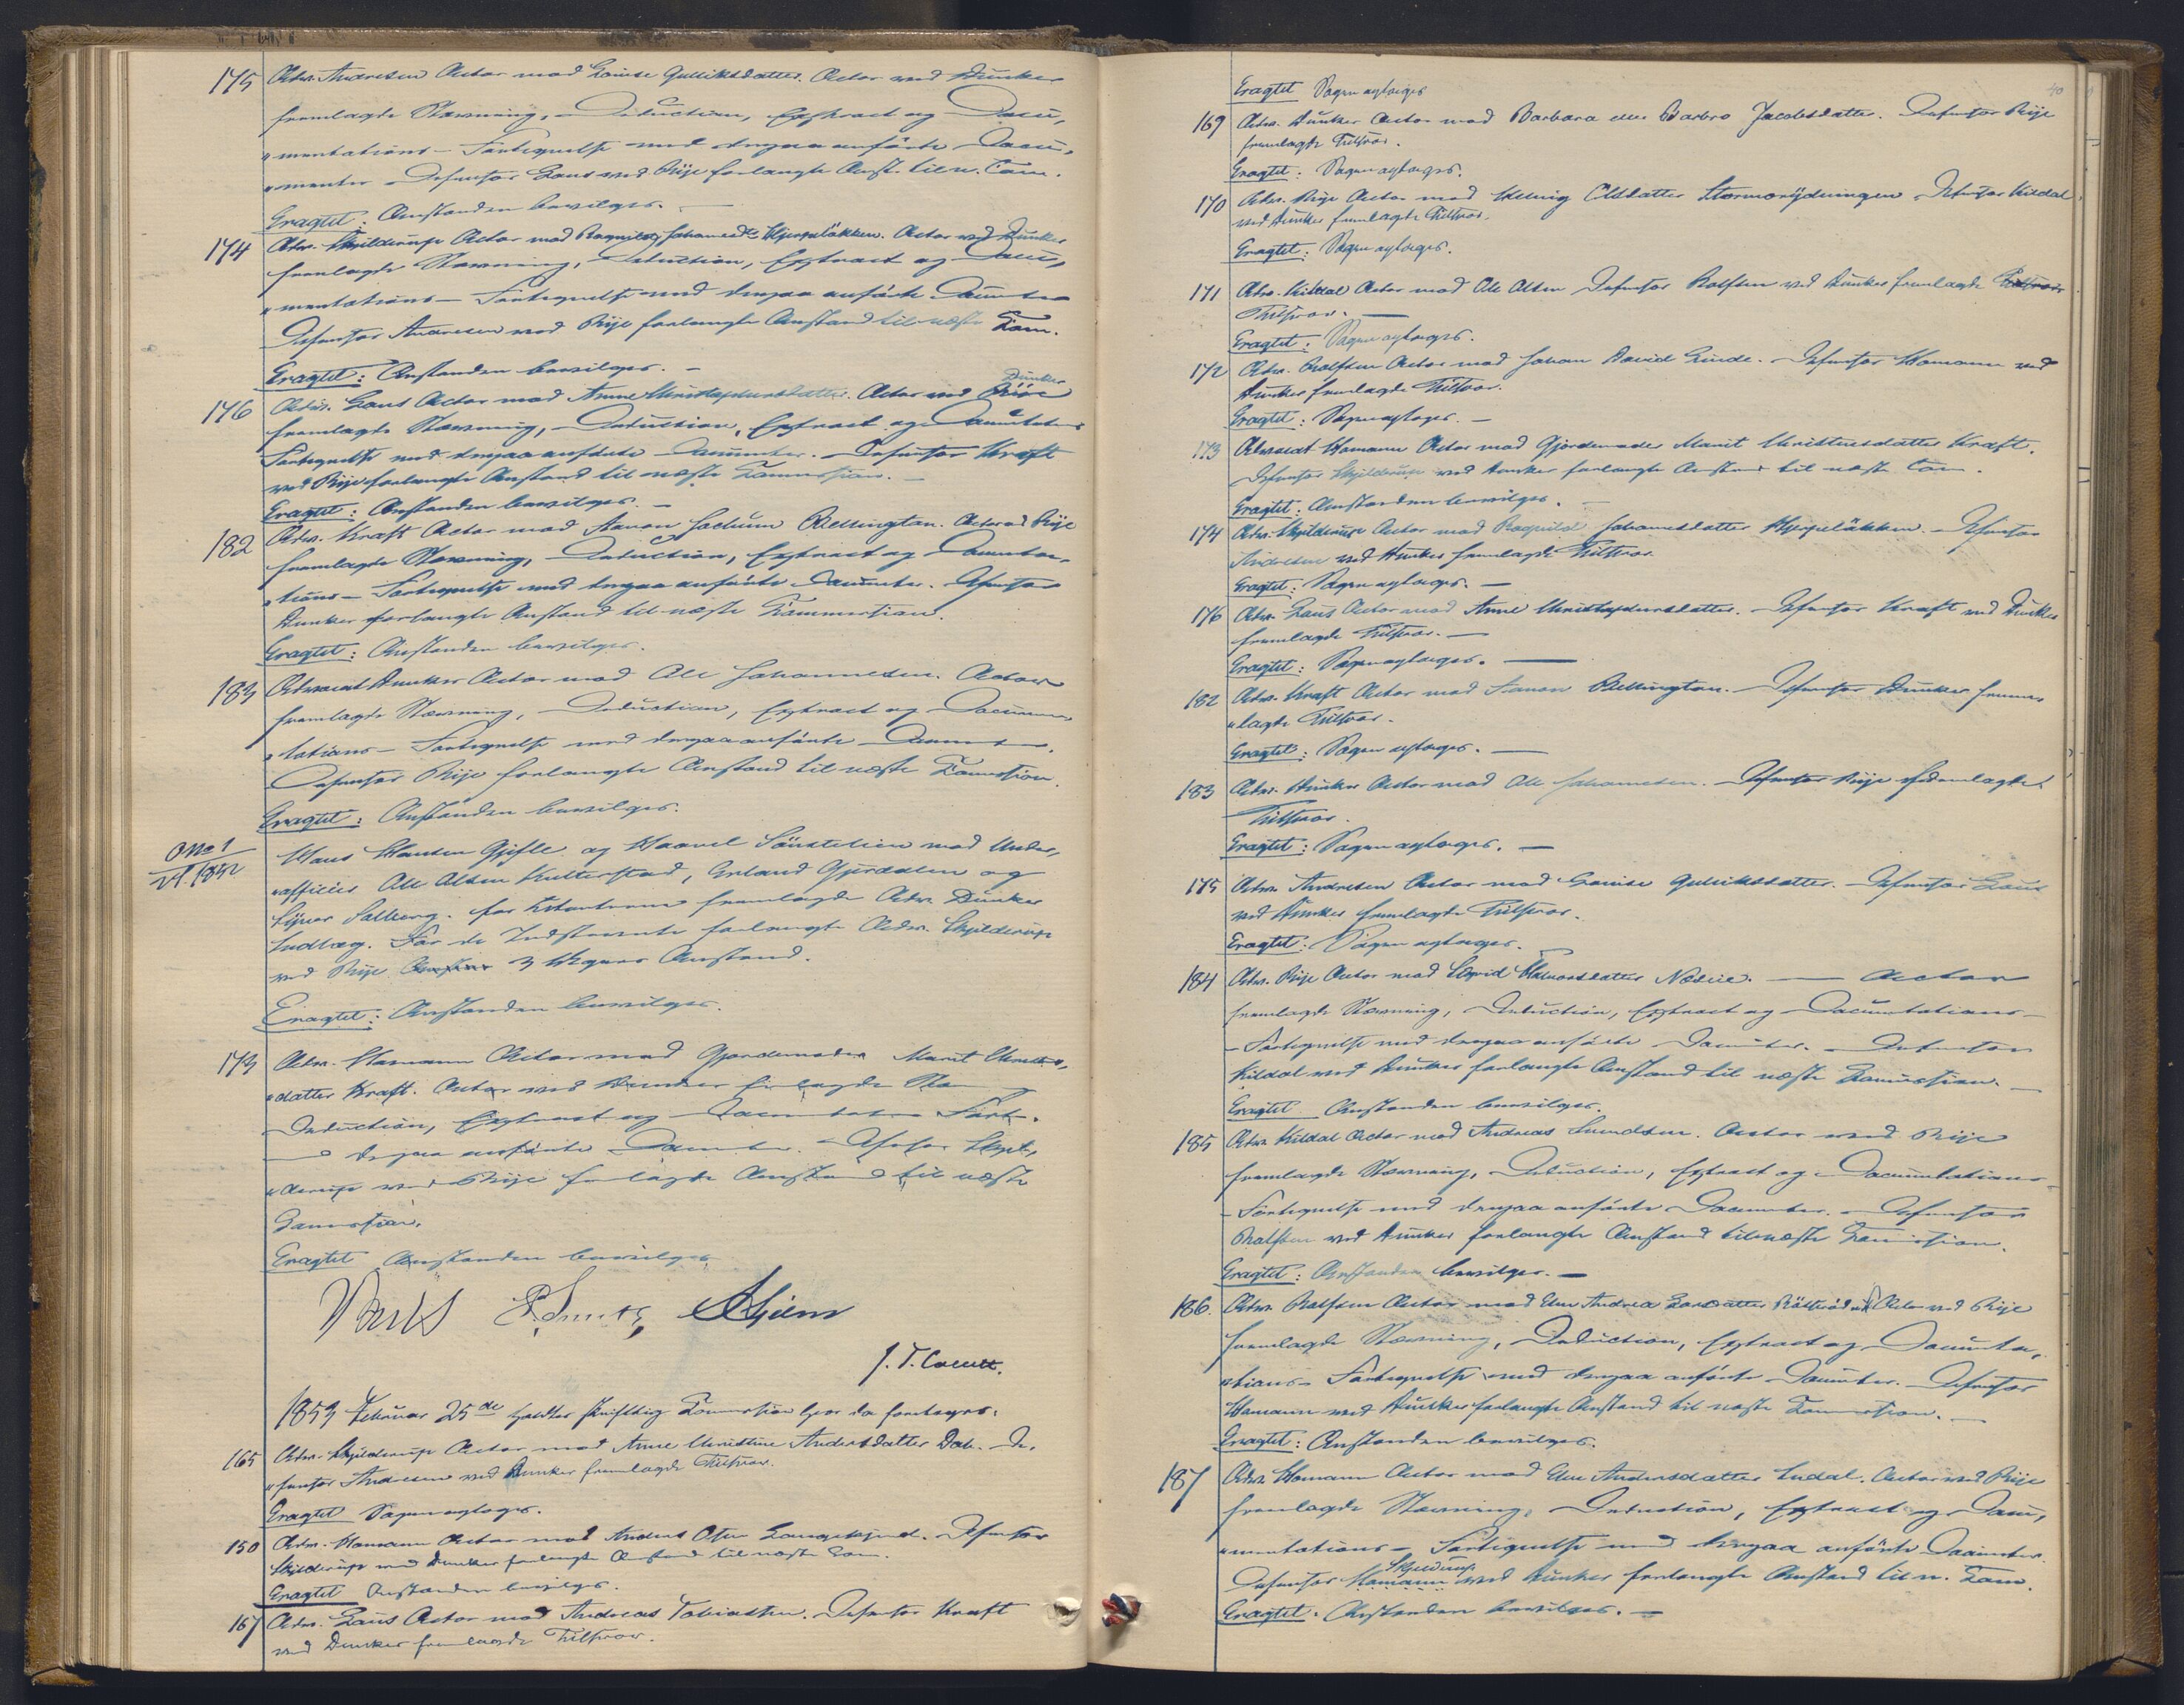 175 Adv. Andresen Actor mod Louise Gulliksdatter. Actor ved Dunker
fremlagde Stævning, Deduction, Extract og Docu„
„mentations-Fortegnelse med derpaa anførte Docu„
„menter. Defensor Lous ved Rije forlangte Anst. til n. Com.
Eragtet: Anstanden bevilges.
174 Adv. Skjelderup Actor mod Ragnild Johannesdtr Skjerpeløkken. Actor ved Dunker
fremlagde Stævning, Deduction, Extract og Docu„
„mentations-Fortegnelse med derpaa anførte Documenter
Defensor Andresen ved Rije forlangte Anstand til næste Com.
Eragtet: Anstanden bevilges.
Dunker
176 Adv. Lous Actor mod Anne Christophersdatter. Actor ved Rije
fremlagde Stævning, Deduction, Extract og Documentations
Fortegnelse med derpaa anførte Documenter. Defensor Kraft
ved Rije forlangte Anstand til næste Commission.
Eragtet: Anstanden bevilges.
182 Adv. Kraft Actor mod Aanon Jochum Rellington. Actor ved Rije
fremlagde Stævning, Deduction, Extract og Documenta„
„tions-Fortegnelse med derpaa anførte Documenter. Defensor
Dunker forlangte Anstand til næste Commission.
Eragtet: Anstanden bevilges.
183 Advocat Dunker Actor mod Ole Johannesen. Actor
fremlagde Stævning, Deduction, Extract og Documen„
„tations-Fortegnelse med derpaa anførte Documenter.
Defensor Rije forlangte Anstand til næste Commission.
Eragtet: Anstanden bevilges.
No 1 Claus Hansen Gjifle og Haavel Sönstelien mod Under„
1852 „officier Ole Olsen Kulterstad, Erland Gjerdalen og
Ejner Solberg. For Citanterne fremlagde Adv. Dunker
Indlæg. For de Indstevnte forlangte Adv. Skjelderup
ved Rije 3 Ugers Anstand.
Eragtet: Anstanden bevilges.
173 Adv. Homann Actor mod Gjordemoder Marit Christens„
„datter Kraft. Actor ved Dunker fremlagde
Deduction, Extract og Documentations Fort.
med derpaa anførte Documenter. Defensor Skjel„
„derup ved Rije forlangte Anstand til næste
Commission.
Eragtet Anstanden bevilges
1853 Februar 25de holdtes skriftlig Commission hvor da foretoges:
165 Adv. Skjelderup Actor mod Anne Christine Andersdatter Dale. De„
„fensor Andresen ved Dunker fremlagde Tilsvar.
Eragtet Sagen optoges.
150 Adv. Homann Actor mod Anders Olsen Langekjend. Defensor
Skjelderup ved Dunker forlangte Anstand til næste Com.
Eragtet Anstanden bevilges.
167 Adv. Lous Actor mod Andreas Tobiassen. Defensor Kraft
ved Dunker fremlagde Tilsvar.
40
Eragtet Sagen optoges
169 Adv. Dunker Actor mod Barbara eller Barbro Jacobsdatter. Defensor Rije
fremlagde Tilsvar.
Eragtet: Sagen optoges.
170 Adv. Rije Actor mod Helvig Olsdatter Stormorydningen. Defensor Kildal
ved Dunker fremlagde Tilsvar.
Eragtet: Sagen optoges.
171 Adv. Kildal Actor mod Ole Olsen Defensor Rolfsen ved Dunker fremlagde
Tilsvar.
Eragtet: Sagen optoges.
172 Adv. Rolfsen Actor mod Johan David Linde. Defensor Homann ved
Dunker fremlagde Tilsvar.
Eragtet: Sagen optoges.
173 Advocat Homann Actor mod Gjordemoder Marit Christensdatter Kraft.
Defensor Skjelderup ved Dunker forlangte Anstand til næste Com.
Eragtet: Anstanden bevilges.
174 Adv. Skjelderup Actor mod Ragnild Johannesdatter Skjerpeløkken. Defensor
Andresen ved Dunker fremlagde Tilsvar.
Eragtet: Sagen optoges.
176 Adv. Lous Actor mod Anne Christophersdatter. Defensor Kraft ved Dunker
fremlagde Tilsvar.
Eragtet: Sagen optoges.
182 Adv. Kraft Actor mod Aanon Rellington. Defensor Dunker frem„
„lagde Tilsvar.
Eragtet: Sagen optoges.
183 Adv. Dunker Actor mod Ole Johannesen. Defensor Rije fremlagde
Tilsvar.
Eragtet: Sagen optoges.
175 Adv. Andresen Actor mod Louise Gulliksdatter. Defensor Lous
ved Dunker fremlagde Tilsvar.
Eragtet: Sagen optoges.
184 Adv. Rije Actor mod Sigrid Halvorsdatter Næsiie. Actor
fremlagde Stævning, Deduction, Extract og Documentations-
Fortegnelse med derpaa anførte Documenter. Defensor
Kildal ved Dunker forlangte Anstand til næste Commission.
Eragtet Anstanden bevilges.
185 Adv. Kildal Actor mod Andreas Svendsen. Actor ved Rije
fremlagde Stævning, Deduction, Extract og Documentations-
Fortegnelse med derpaa anførte Documenter. Defensor
Rolfsen ved Dunker forlangte Anstand til næste Commission.
Eragtet: Anstanden bevilges.
186. Adv. Rolfsen Actor mod Else Andrea Larsdatter Actor ved Rije
fremlagde Stævning, Deduction, Extract og Documenta„
„tions-Fortegnelse med derpaa anførte Documenter. Defensor
Homann ved Dunker forlangte Anstand til næste Commission.
Eragtet: Anstanden bevilges.
187 Adv. Homann Actor mod Else Andersdatter Ludal. Actor ved Rije
fremlagde Stævning, Deduction, Extract og Docu„
„mentations-Fortegnelse med derpaa anførte Documenter.
Skjelderup
Defensor Homann ved Dunker forlangte Anstand til n. Com.
Eragtet. Anstanden bevilges.